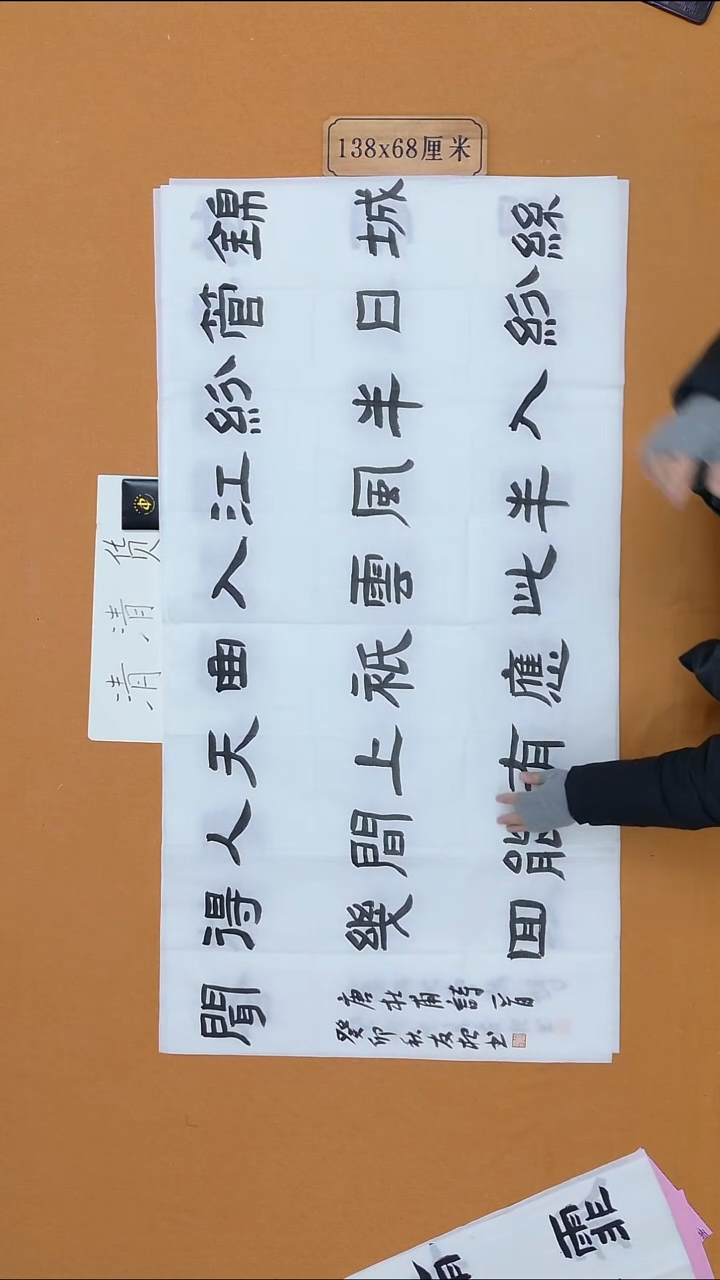 138x68厘米
錦城絲
管日紛
紛半入
江風半
入雲此
曲祇應
天上有
人間能
得幾回
聞
唐杜甫詩一首
癸卯秋友書
清清货
霏